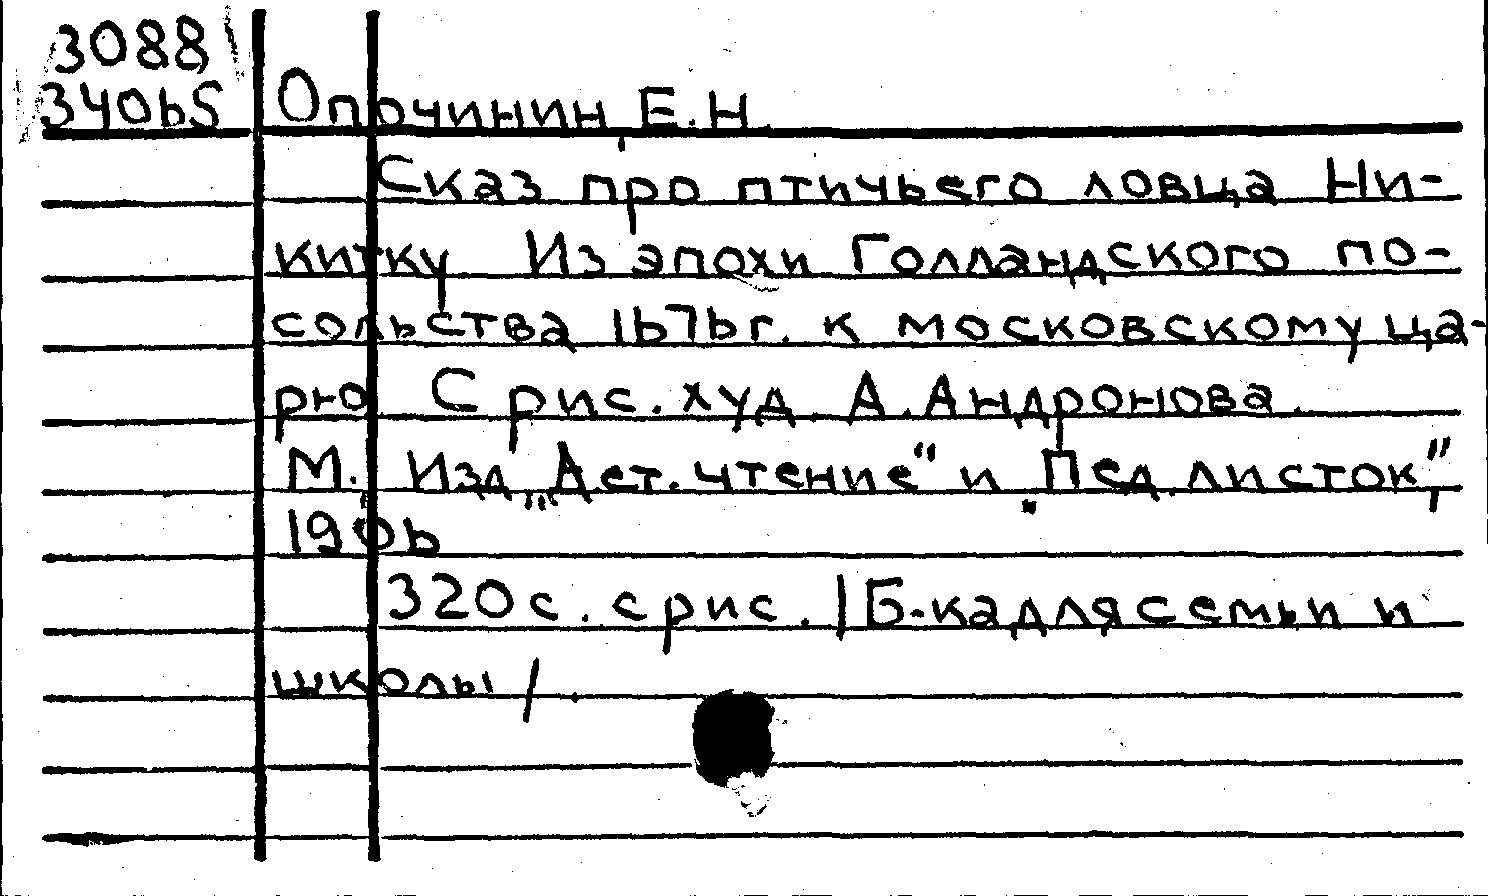 3088
34065 Опочинин, Е.Н.
Сказ про птичьего ловца Ни-
китку Из эпохи Голландского по-
сольства 1676 г. к московскому ца-
рю С рис. худ. А. Андронова.
М. Изд. "Дет. чтение" и "Пед. листок",
1906
320 с. с рис. /Б-ка для семьи и
школы/.